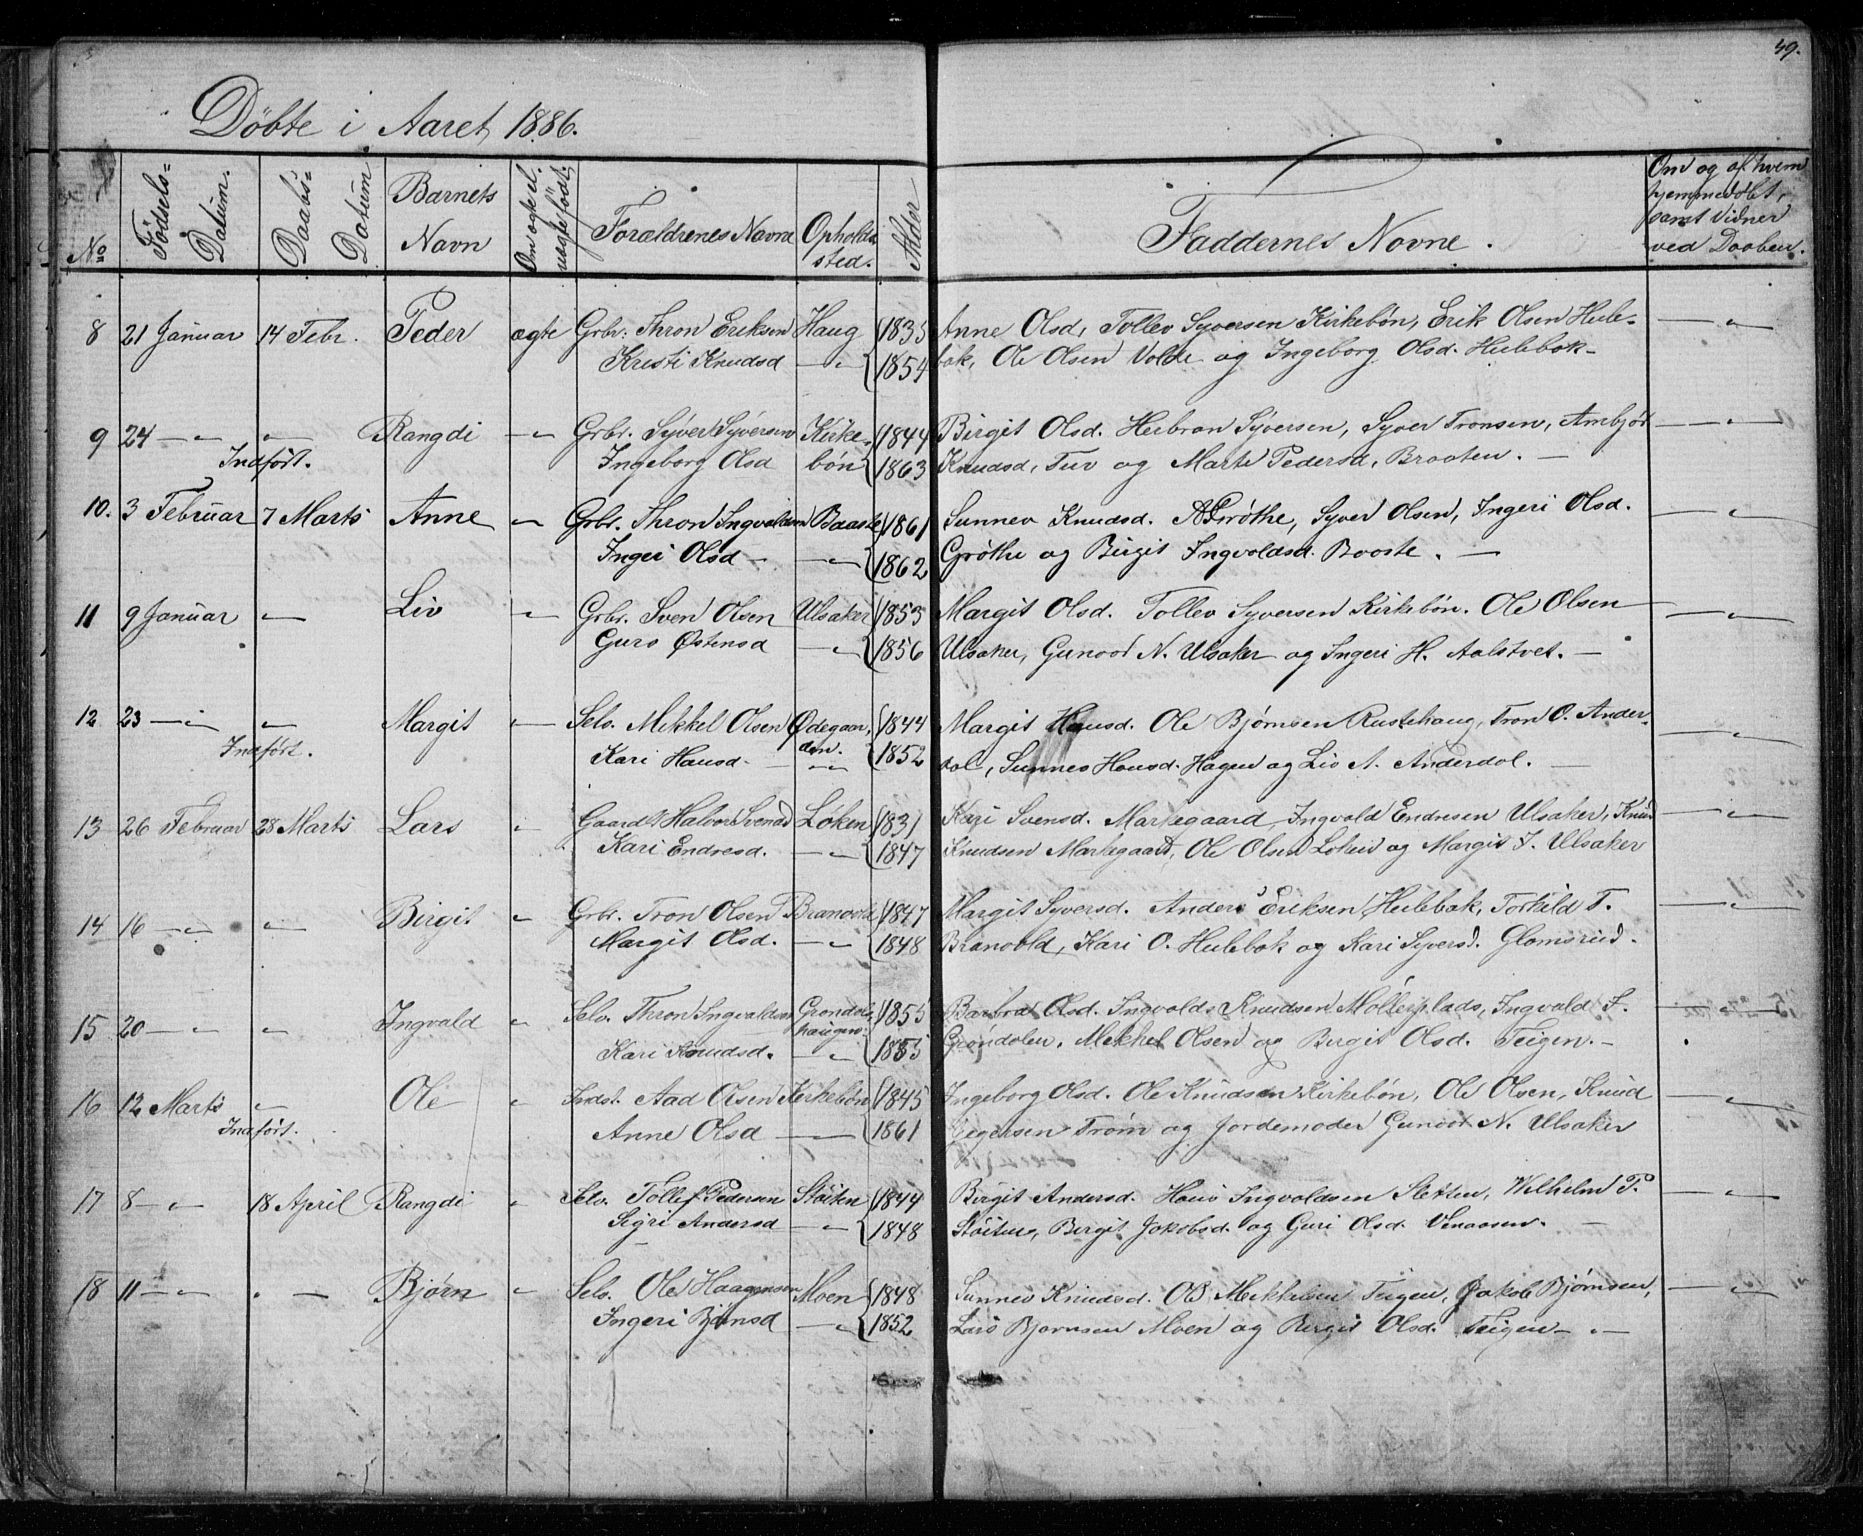 49.
Döbte i Aaret 1886.
No
Födsels-Datum.
Daabs-Datum
Barnets Navn
Om ægte el. uægte födt
Foræld­renes Navne
Opholds-sted.
Alder
Faddernes Navne.
Om og af hvem hjemmedöbt, samt Vidner ved Daaben.
8 21 Januar 14 Febr. Peder ægte Grbr. Thron Eriksen Haug 1835 Anne Olsd, Tollev Syversen Kirkebøn, Erik Olsen Hule-
Kristi Knudsd 1854 bak, Ole Olsen Volde og Ingeborg Olsd. Hulebak-
9 24 Rangdi Grbr. Syver Syversen Kirke- 1844 Birgit Olsd. Herbran Syversen, Syver Tronsen, Ambjør
Indført. Ingeborg Olsd bøn 1863 Knudsd, Tuv og Marte Pedersd, Braaten.
10. 3 Februar 7 Marts Anne Grbr. Thron Ingvaldsen Baaste 1861 Sunnev Knudsd. Grøthe, Syver Olsen, Ingeri Olsd.
Ingeri Olsd 1862 Grøthe og Birgit Ingvaldsd. Baaste.
11 9 Januar Liv Grbr. Sven Olsen Ulsaker 1853 Margit Olsd. Tollev Syversen Kirkebøn. Ole Olsen
Guro Østensd 1856 Ulsaker, Gunvor N. Ulsaker og Ingeri H. Aalstvet.
12 23 Margit Selv. Mikkel Olsen Ødegaar- 1844 Margit Hansd. Ole Bjørnsen Rustehaug, Tron O. Ander-
Indført. Kari Hansd. den. 1852 dal, Sunnev Hansd. Hagen og Liv A. Anderdal.
13 26 Februar 28 Marts Lars Gaardb. Halvor Svensd Løken 1831 Kari Svensd. Markegaard, Ingvald Endresen Ulsaker, Knud
Kari Endresd. 1847 Knudsen Markegaard, Ole Olsen Løken og Margit I. Ulsaker
14 16 Birgit Grbr. Tron Olsen Branvold 1847 Margit Syversd. Anders Eriksen Hulebak, Torkild T.
Margit Olsd. 1848 Branvold, Kari O. Hulebak og Kari Syversd. Glomsrud.
15 20 Ingvald Selv. Thron Ingvaldsen Grøndals- 1855 Barbra Olsd. Ingvald Knudsen Mølleplads, Ingvald I.
Kari Knudsd. haugen 1855 Grøndalen, Mekkel Olsen og Birgit Olsd. Teigen.
16 12 Marts Ole Indst. Aad Olsen Kirkebøn 1845 Ingeborg Olsd. Ole Knudsen Kirkebøn, Ole Olsen, Knud
Indført. Anne Olsd 1861 Trøm og Jordemoder Gunvor N. Ulsaker
17 8 18 April Rangdi Selv. Tollef Pedersen Støiten 1844 Birgit Andersd. Hans Ingvaldsen Sletten, Wilhelm P.
Sigri Andersd 1848 Støiten, Birgit Jakobsd. og Guri Olsd. Venaasen.
18 11 Bjørn Selv. Ole Haagensen Moen 1848 Sunnev Knudsd. Ole Mekkelsen Teigen, Jakob Bjørnsen,
Ingeri Bjørnsd 1852 Lars Bjørnsen Moen og Birgit Olsd. Teigen